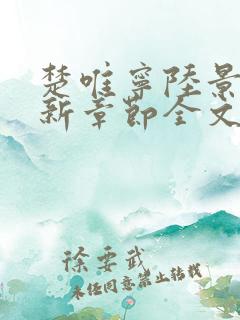 楚唯寧陸景
新章節全文
徐要武
未经同意禁止转载